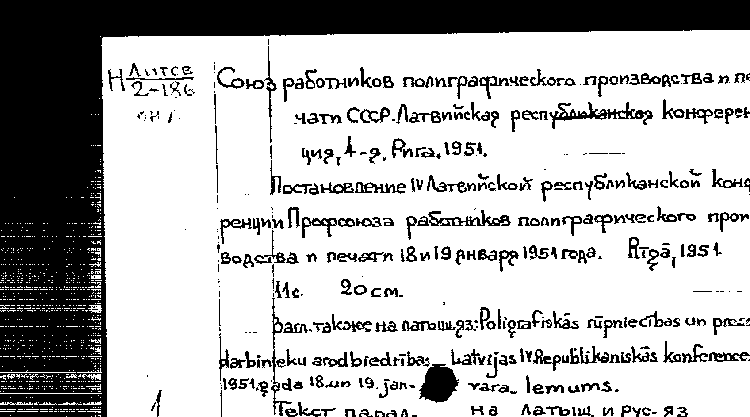 Н Литсв
2-186
Союз работников полиграфического производства и пе
чати СССР. Латвийская республиканская конферен
ция, 4-я, Рига, 1951.
Постановление IV Латвийской республиканской конф
ренции Профсоюза работников полиграфического прои
водства и печати 18 и 19 января 1951 года. Rīgā, 1951
11с. 20 см.
Загл. также на латыш. яз: Poligrafiskās rūpniecības un pres
darbinieku arodbiedrības Latvijas IV Republikāniskās konference
1951. gada 18. un 19. jan- vara- lemums.
1 Текст парал- на латыш. и рус- яз